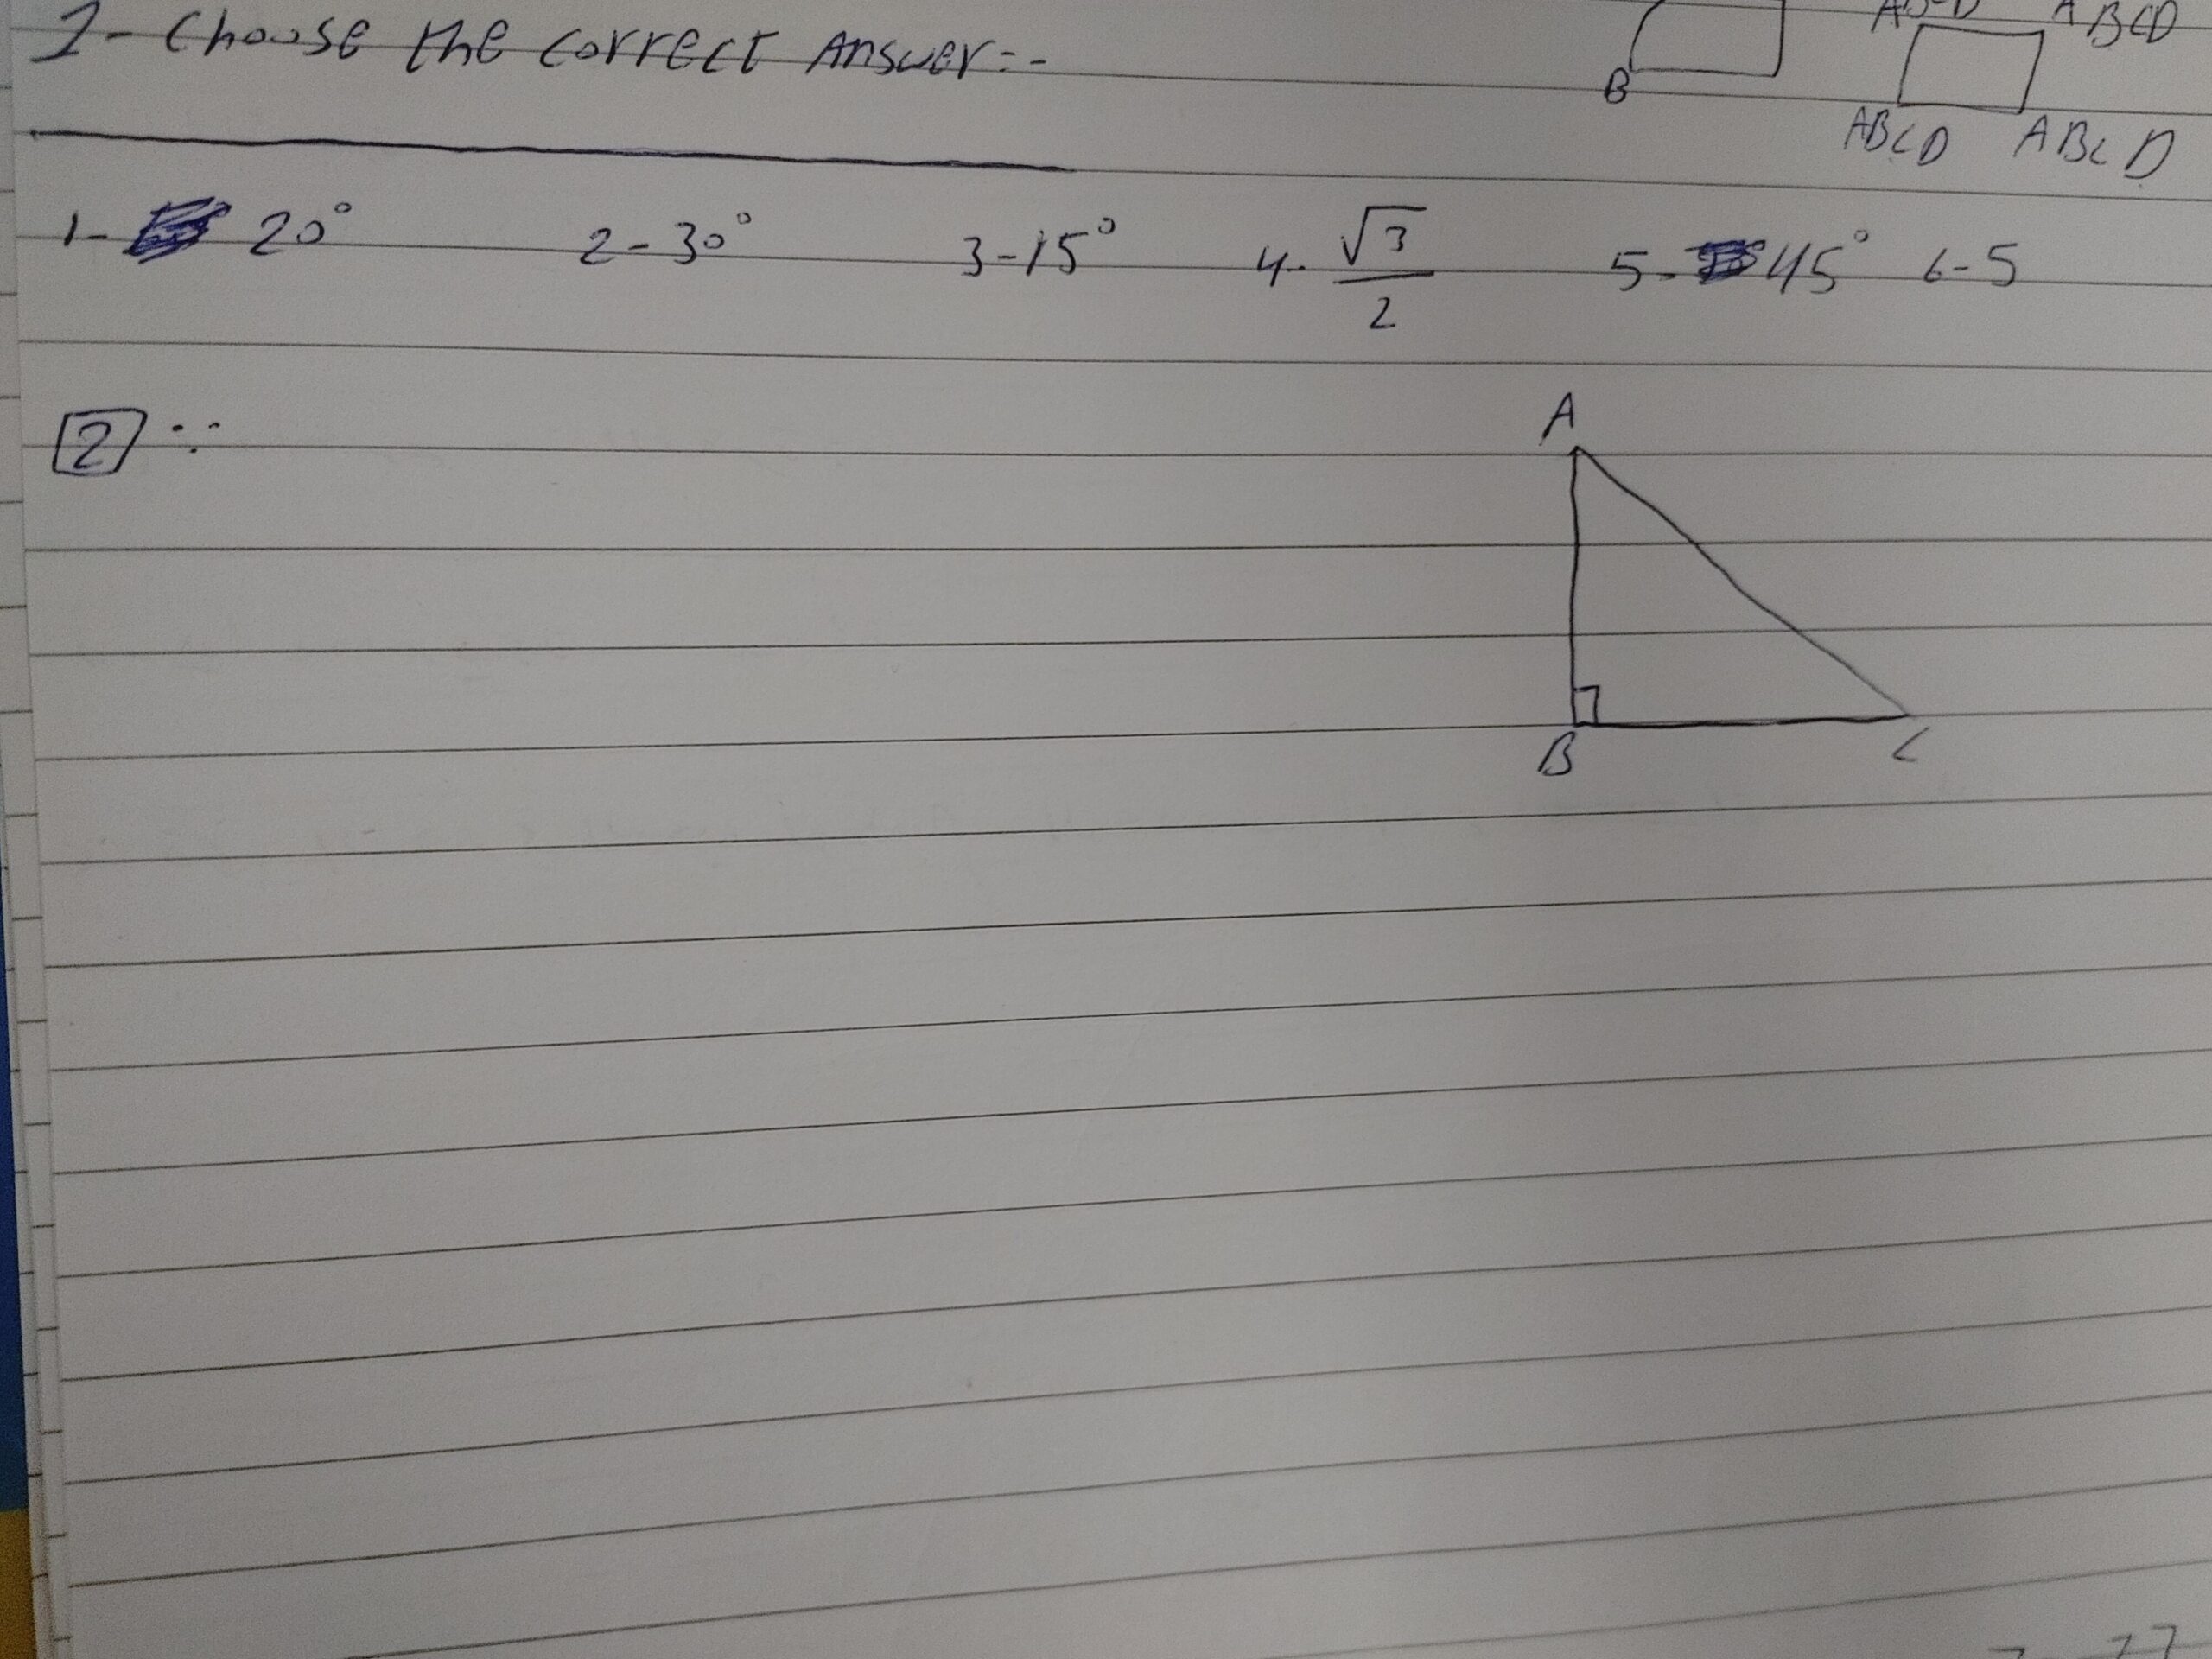 1- Choose the correct Answer:-
B
A BCD
ABCD ABCD
1- 20° 2- 30° 3- 15° 4- √3/2 5- 45° 6- 5
2 ∵
A
B C